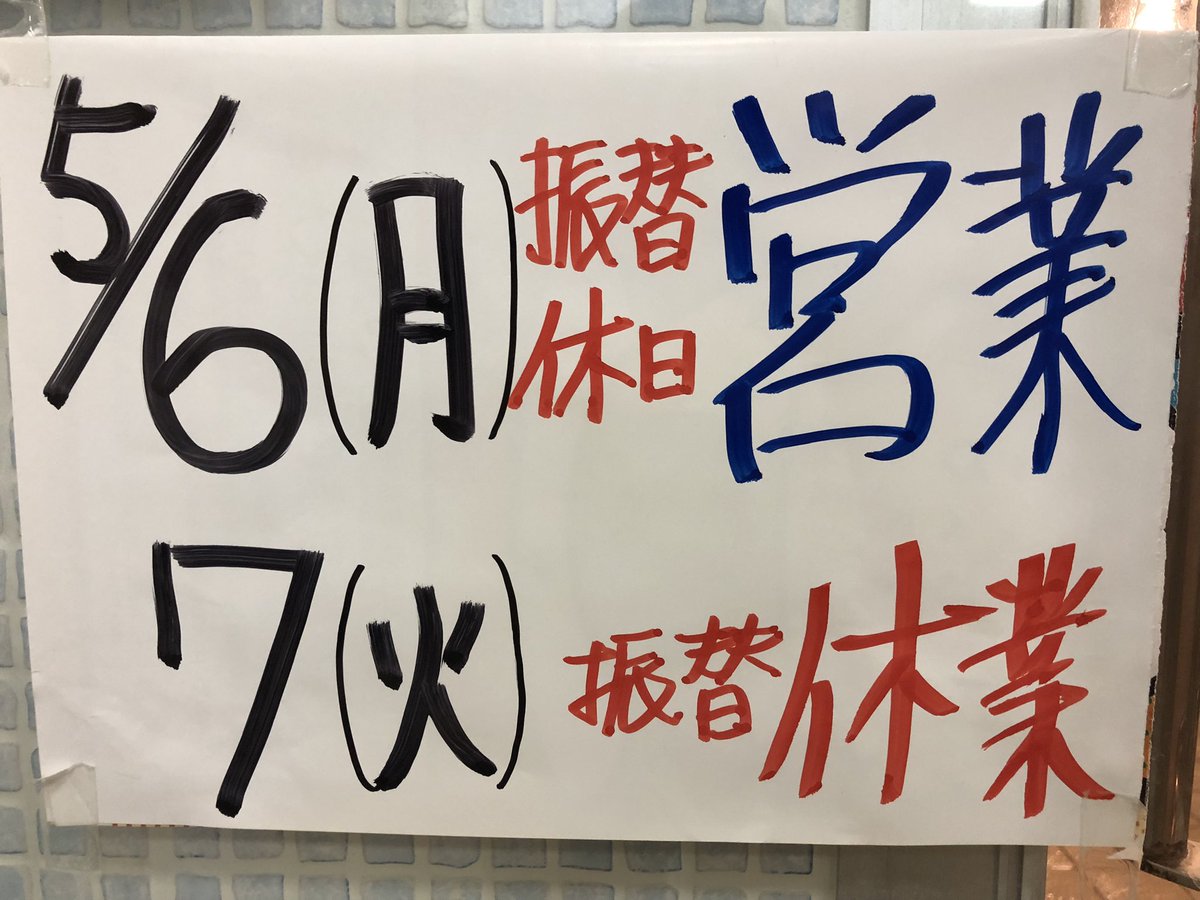 5/6(月)振替休日 営業
7(火)振替休業